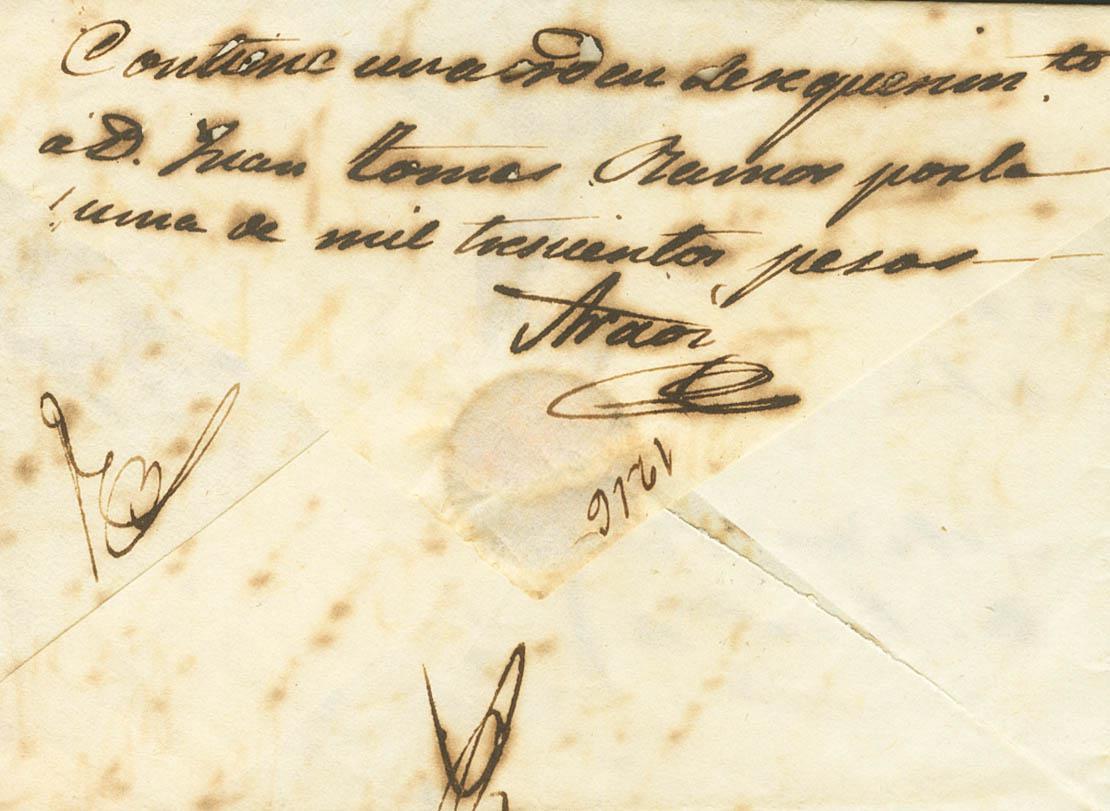 Contiene una orden de requerim.to
a D. Juan tomas Ramos por la
suma de mil trescientos pesos
1216